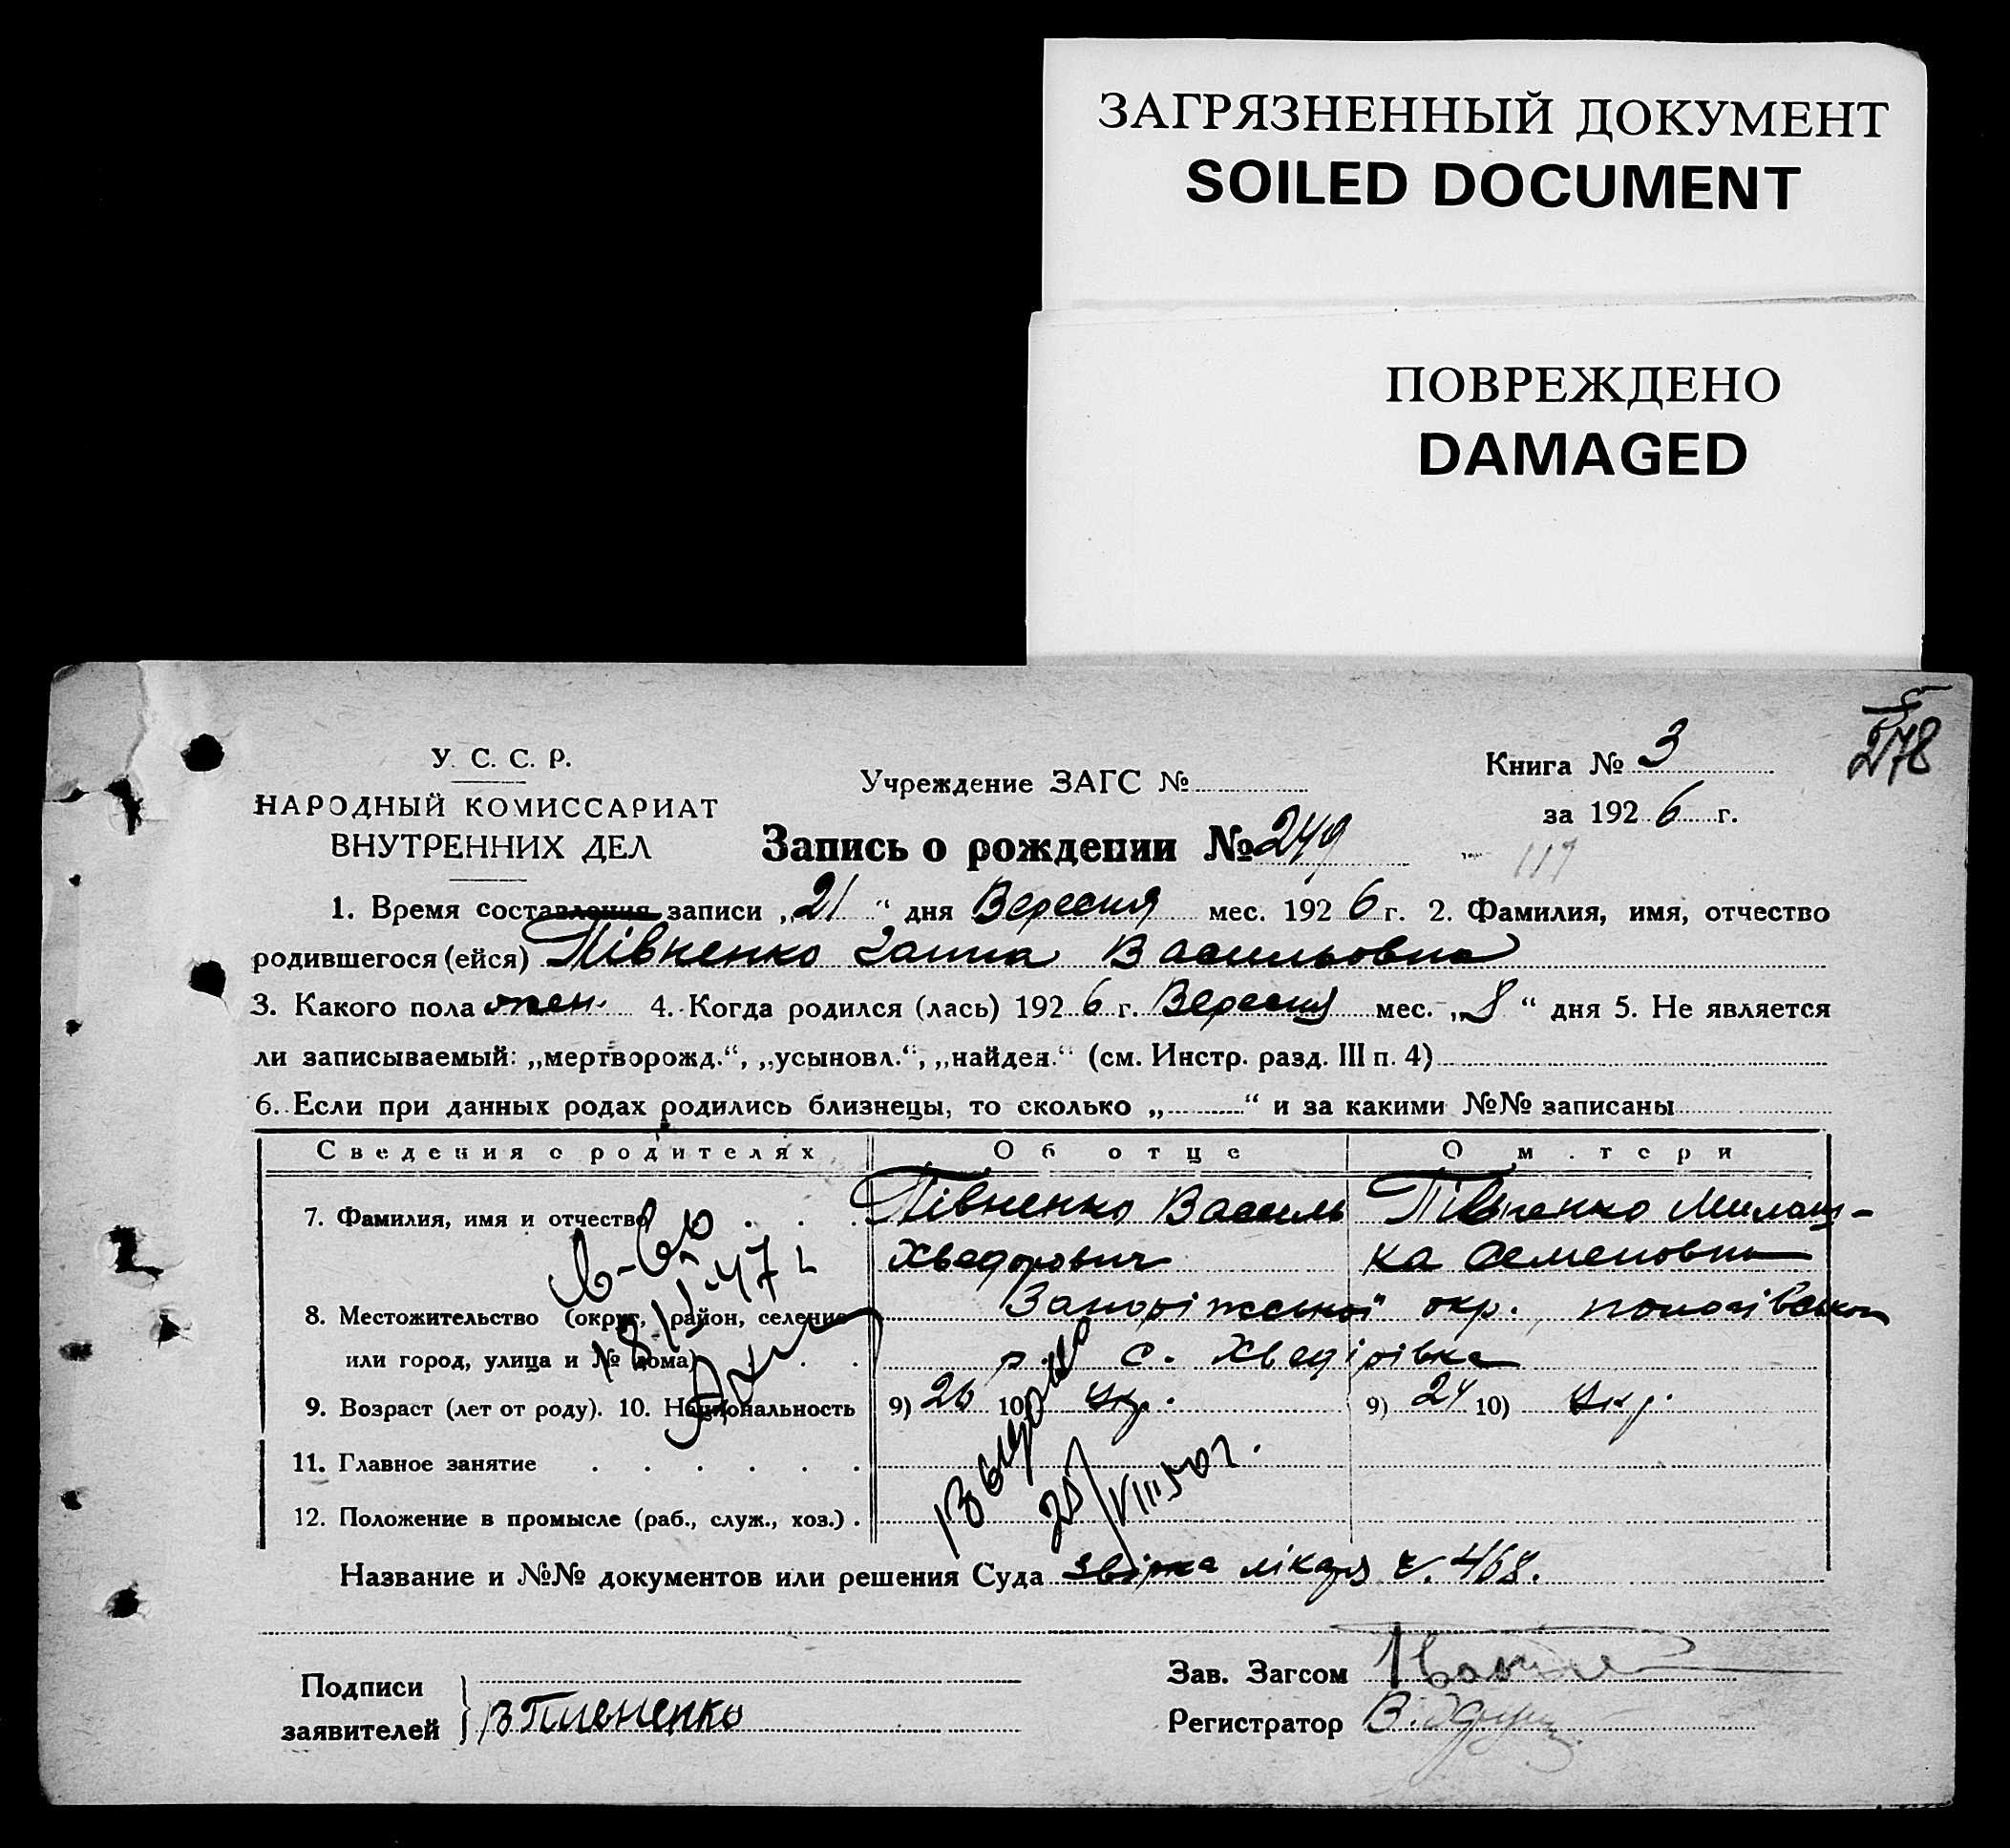 ЗАГРЯЗНЕННЫЙ ДОКУМЕНТ
SOILED DOCUMENT
ПОВРЕЖДЕНО
DAMAGED
278
У. С. С. Р.
НАРОДНЫЙ КОМИССАРИАТ
ВНУТРЕННИХ ДЕЛ
Учреждение ЗАГС №
Книга № 3
за 1926 г.
Запись о рождении № 249
117
1. Время составления записи „21“ дня Вересня мес. 1926 г. 2. Фамилия, имя, отчество
родившегося (ейся) Півненко Ганна Васильовна
3. Какого пола жен. 4. Когда родился (лась) 1926 г. Вересня мес. „8“ дня 5. Не является
ли записываемый: „мертворожд.“, „усыновл.“, „найден.“ (см. Инстр. разд. III п. 4)
6. Если при данных родах родились близнецы, то сколько „ “ и за какими №№ записаны
Сведения о родителях Об отце О м.тери
7. Фамилия, имя и отчество Півненко Василь Півненко Милаш-
Хведорович ка Семеновна
8. Местожительство (округ, район, селение Запоріжської окр., пологівськ
или город, улица и № дома) р. с. Хведірівка
9. Возраст (лет от роду). 10. Национальность 9) 26 10) Укр. 9) 24 10) Укр.
11. Главное занятие
12. Положение в промысле (раб., служ., хоз.)
18/I-47
Выдано
25/VIII 50 г.
Название и №№ документов или решения Суда звістка лікаря ч. 468.
Подписи
заявителей В Пивненко
Зав. Загсом
Регистратор